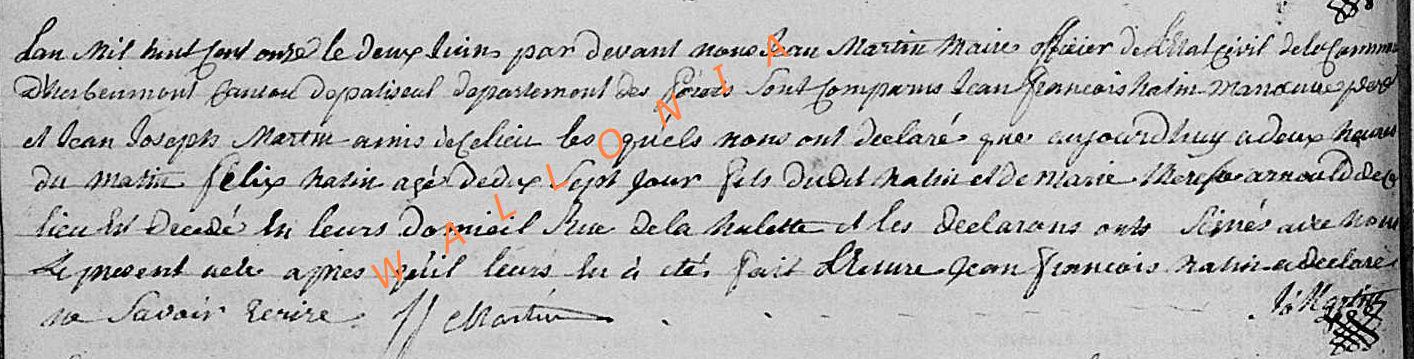 L'an Mil huit Cent onze le deux Juin par devant nous Jean Martin Maire officier de l'Etat Civil de la Commune
d'herbeumont Canton de paliseul departement des forêts Sont Comparus Jean françois hatin manoeuvre pere
et Jean Joseph Martin amis de Ce lieu les quels nous ont declaré que aujourdhuy a deux heures
du matin félix hatin agé de dix Sept Jour fils dudit hatin et de marie therese arnould de Ce
lieu Est decedé En leurs domicil Rue de la hulette et les declarans onts Sinés avec nous
le present acte apres qu'il leurs En à eté fait LEcture Jean françois hatin a declaré
ne Savoir Ecrire JJ Martin J Martin
WALLONIA